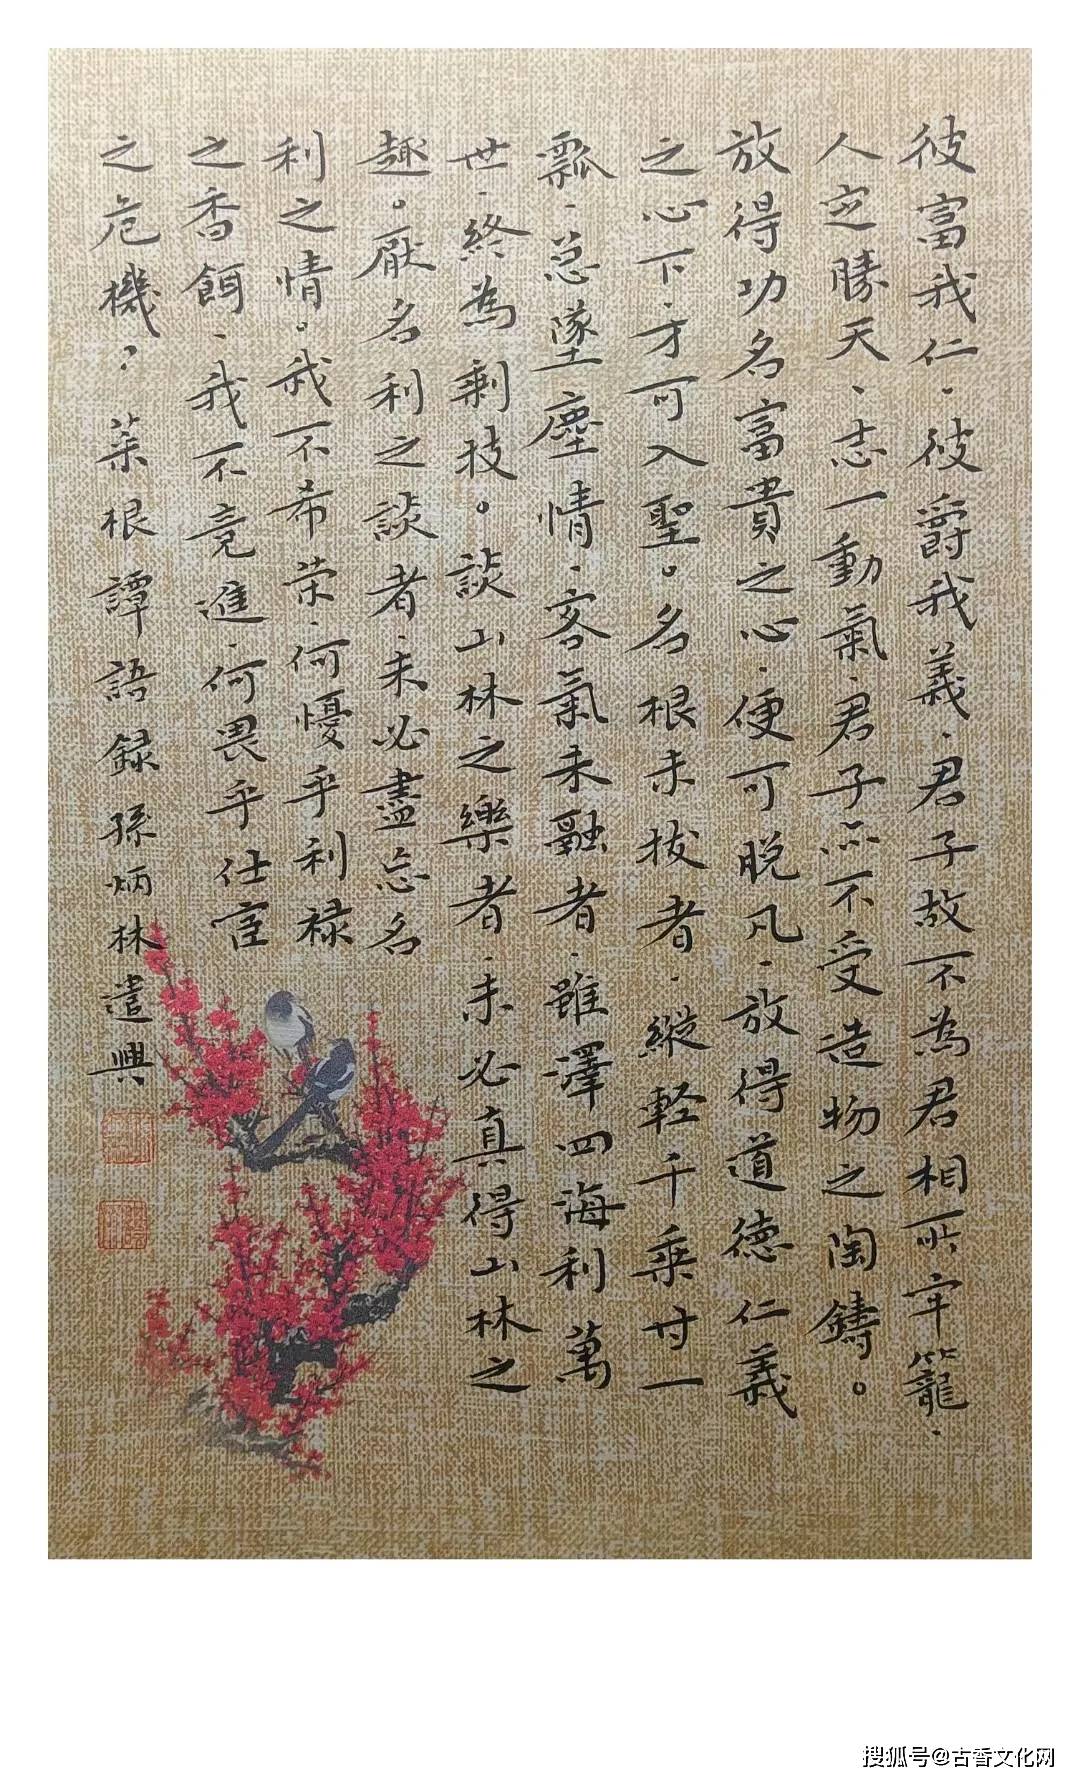 彼富我仁、彼爵我義、君子故不為君相所牢籠、
人定勝天、志一動氣、君子亦不受造物之陶鑄。
放得功名富貴之心、便可脫凡、放得道德仁義
之心下、才可入聖。名根未拔者、縱軽千乘甘一
瓢、总墜塵情、客氣未融者、雖澤四海利萬
世、終為剩技。談山林之樂者、未必真得山林之
趣。厭名利之談者、未必盡忘名
利之情。我不希荣、何憂乎利禄
之香餌、我不竞進、何畏乎仕宦
之危機？菜根譚語録孫炳林遣興
搜狐号@古香文化网